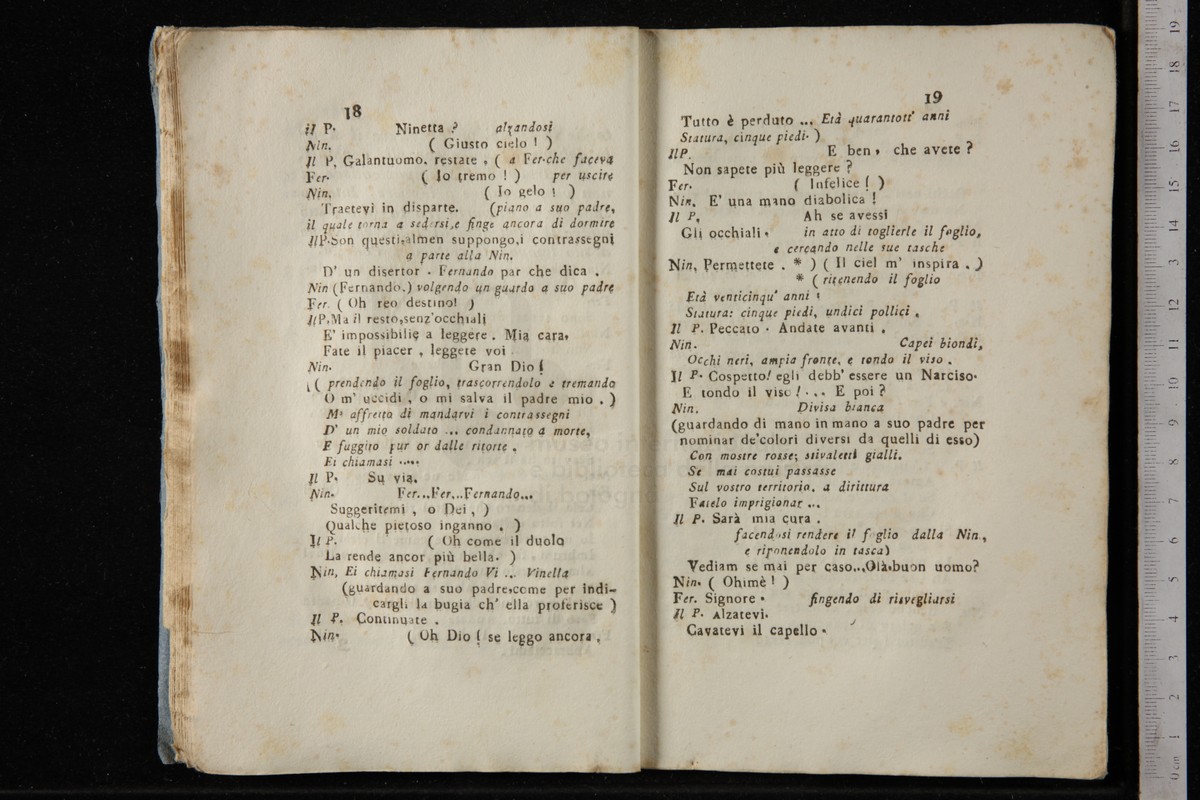 18
il P. Ninetta ? alzandosi
Nin. ( Giusto cielo ! )
Il P. Galantuomo. restate , ( a Fer.che faceva
Fer. ( Io tremo ! ) per uscire
Nin. ( Io gelo ! )
Traetevi in disparte. (piano a suo padre,
il quale torna a sedersi,e finge ancora di dormire
IlP.Son questi,almen suppongo,i contrassegni
a parte alla Nin.
D' un disertor . Fernando par che dica .
Nin (Fernando.) volgendo un guardo a suo padre
Fer. ( Oh reo destino! )
IlP.Ma il resto,senz'occhiali
E' impossibilie a leggere . Mia cara,
Fate il piacer , leggete voi .
Nin. Gran Dio !
( prendendo il foglio, trascorrendolo e tremando
O m' uccidi , o mi salva il padre mio . )
M' affretto di mandarvi i contrassegni
D' un mio soldato ... condannato a morte,
E fuggito pur or dalle ritorte .
Ei chiamasi .....
Il P. Su via.
Nin. Fer...Fer...Fernando...
Suggeritemi , o Dei , )
Qualche pietoso inganno . )
Il P. ( Oh come il duolo
La rende ancor più bella. )
Nin, Ei chiamasi Fernando Vi ... Vinella
(guardando a suo padre,come per indi-
cargli la bugia ch' ella proferisce )
Il P. Continuate .
Nin. ( Oh Dio ! se leggo ancora ,
19
Tutto è perduto ... Età quarantott' anni
Statura, cinque piedi. )
IlP. E ben , che avete ?
Non sapete più leggere ?
Fer. ( Infelice ! )
Nin. E' una mano diabolica !
Il P, Ah se avessi
Gli occhiali , in atto di toglierle il foglio,
e cercando nelle sue tasche
Nin, Permettete . * ) ( Il ciel m' inspira . )
* ( ritenendo il foglio
Età venticinqu' anni :
Statura: cinque piedi, undici pollici .
Il P. Peccato . Andate avanti .
Nin. Capei biondi,
Occhi neri, ampia fronte, e tondo il viso .
Il P. Cospetto! egli debb' essere un Narciso.
E tondo il viso ! ... E poi ?
Nin. Divisa bianca
(guardando di mano in mano a suo padre per
nominar de'colori diversi da quelli di esso)
Con mostre rosse; stivaletti gialli.
Se mai costui passasse
Sul vostro territorio, a dirittura
Fatelo imprigionar ...
Il P. Sarà mia cura .
facendosi rendere il foglio dalla Nin ,
e riponendolo in tasca)
Vediam se mai per caso...Olà,buon uomo?
Nin. ( Ohimè ! )
Fer. Signore . fingendo di risvegliarsi
Il P. Alzatevi.
Cavatevi il capello .